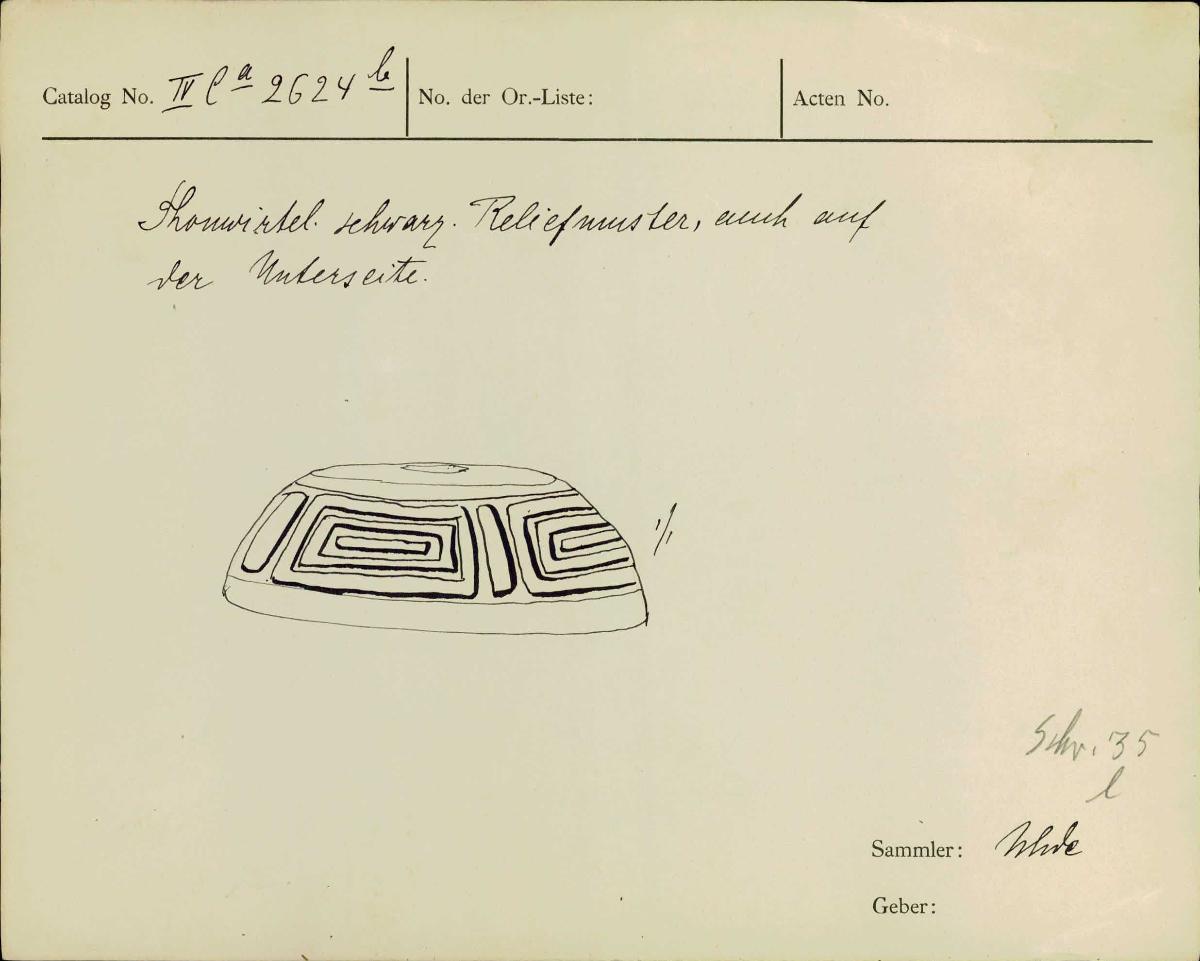 Catalog No. IV Ca 2624 b
No. der Or.-Liste:
Acten No.
Thonwirtel. schwarz. Reliefmuster, auch auf
der Unterseite.
1/1
Schr. 35
l
Sammler: Uhde
Geber: